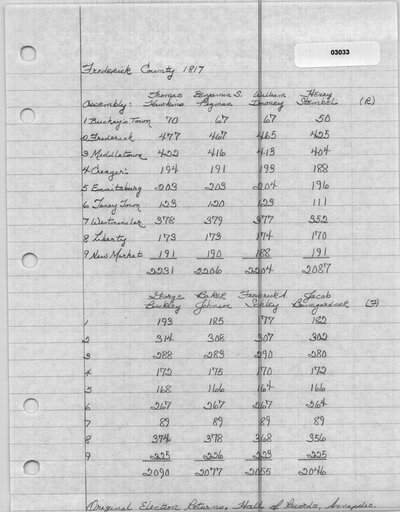 03033
Frederick County 1817
Thomas Benjamin S. William Henry
Assembly: Hawkins Pigman Downey Stembel (R)
1 Buckey's Town 70 67 67 50
2 Frederick 477 467 465 425
3 Middletown 422 416 413 404
4 Creager's 194 191 193 188
5 Emmitsburg 203 203 204 196
6 Taney Town 123 120 123 111
7 Westminster 378 379 377 352
8 Liberty 173 173 174 170
9 New Market 191 190 188 191
2231 2206 2204 2087
George Baker Frederick A. Jacob
Buckley Johnson Schley Baumgardner (F)
1 193 185 177 182
2 314 308 307 302
3 288 283 290 280
4 172 175 170 172
5 168 166 164 166
6 267 267 267 264
7 89 89 89 89
8 374 378 368 356
9 225 226 223 225
2090 2077 2055 2046
Original Election Returns, Hall of Records, Annapolis.